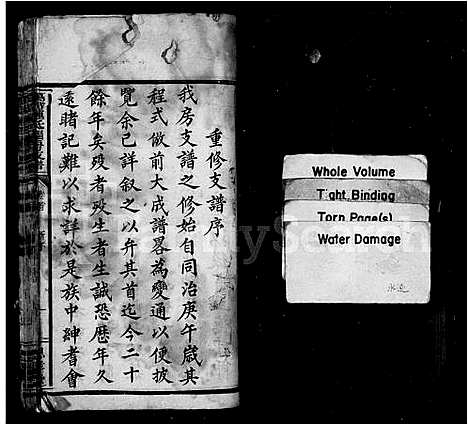 重修支譜序
我房支譜之修始自同治庚午歲其
程式倣前大成譜畧為變通以便披
覽余已詳叙之以弁其首迄今二十
餘年矣歿者歿生者生誠恐歷年久
遠睹記難以求詳於是族中紳耆會
Whole Volume
Tight Binding
Torn Page(s)
Water Damage